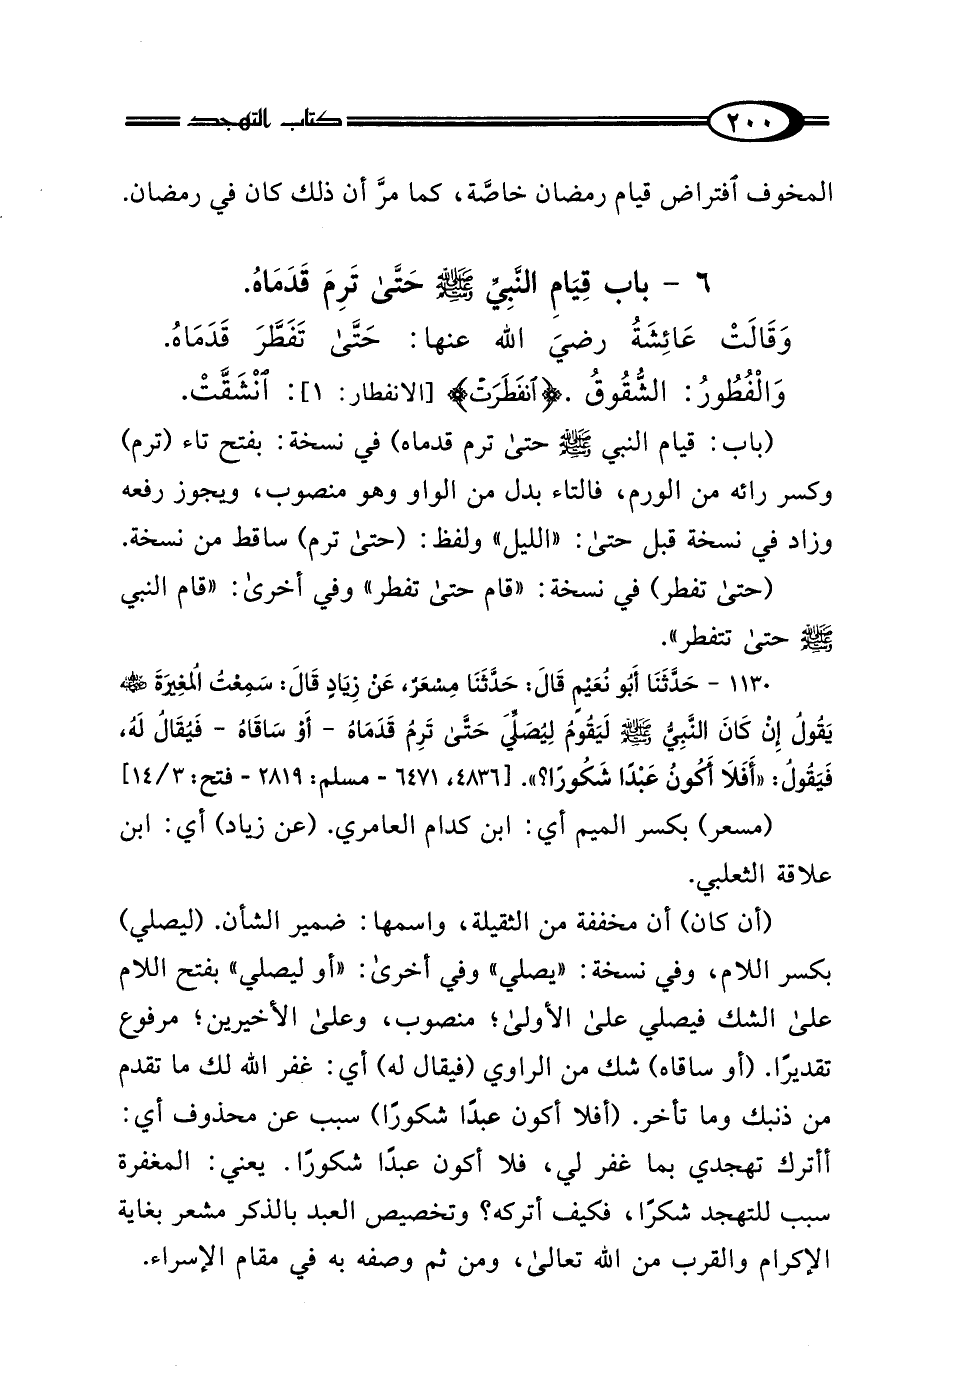 ٢٠٠ كتاب التهجد
المخوف ٱفتراض قيام رمضان خاصَّة، كما مرَّ أن ذلك كان في رمضان.
٦ - باب قِيَامِ النَّبِيِّ ﷺ حَتَّىٰ تَرِمَ قَدَمَاهُ.
وَقَالَتْ عَائِشَةُ رضيَ الله عنها: حَتَّىٰ تَفَطَّرَ قَدَمَاهُ.
وَالْفُطُورُ: الشُّقُوقُ. ﴿ٱنفَطَرَتْ﴾ [الانفطار: ١]: ٱنْشَقَّتْ.
(باب: قيام النبي ﷺ حتىٰ ترم قدماه) في نسخة: بفتح تاء (ترم)
وكسر رائه من الورم، فالتاء بدل من الواو وهو منصوب، ويجوز رفعه
وزاد في نسخة قبل حتىٰ: «الليل» ولفظ: (حتىٰ ترم) ساقط من نسخة.
(حتىٰ تفطر) في نسخة: «قام حتىٰ تفطر» وفي أخرىٰ: «قام النبي
ﷺ حتىٰ تتفطر».
١١٣٠ - حَدَّثَنَا أَبُو نُعَيْمٍ قَالَ: حَدَّثَنَا مِسْعَرٌ، عَنْ زِيَادٍ قَالَ: سَمِعْتُ المُغِيرَةَ ﵁
يَقُولُ إِنْ كَانَ النَّبِيُّ ﷺ لَيَقُومُ لِيُصَلِّيَ حَتَّىٰ تَرِمُ قَدَمَاهُ - أَوْ سَاقَاهُ - فَيُقَالُ لَهُ،
فَيَقُولُ: «أَفَلَا أَكُونُ عَبْدًا شَكُورًا؟». [٤٨٣٦، ٦٤٧١ - مسلم: ٢٨١٩ - فتح: ٣/ ١٤]
(مسعر) بكسر الميم أي: ابن كدام العامري. (عن زياد) أي: ابن
علاقة الثعلبي.
(أن كان) أن مخففة من الثقيلة، واسمها: ضمير الشأن. (ليصلي)
بكسر اللام، وفي نسخة: «يصلي» وفي أخرىٰ: «أو ليصلي» بفتح اللام
علىٰ الشك فيصلي علىٰ الأولىٰ؛ منصوب، وعلىٰ الأخيرين؛ مرفوع
تقديرًا. (أو ساقاه) شك من الراوي (فيقال له) أي: غفر الله لك ما تقدم
من ذنبك وما تأخر. (أفلا أكون عبدًا شكورًا) سبب عن محذوف أي:
أأترك تهجدي بما غفر لي، فلا أكون عبدًا شكورًا. يعني: المغفرة
سبب للتهجد شكرًا، فكيف أتركه؟ وتخصيص العبد بالذكر مشعر بغاية
الإكرام والقرب من الله تعالىٰ، ومن ثم وصفه به في مقام الإسراء.